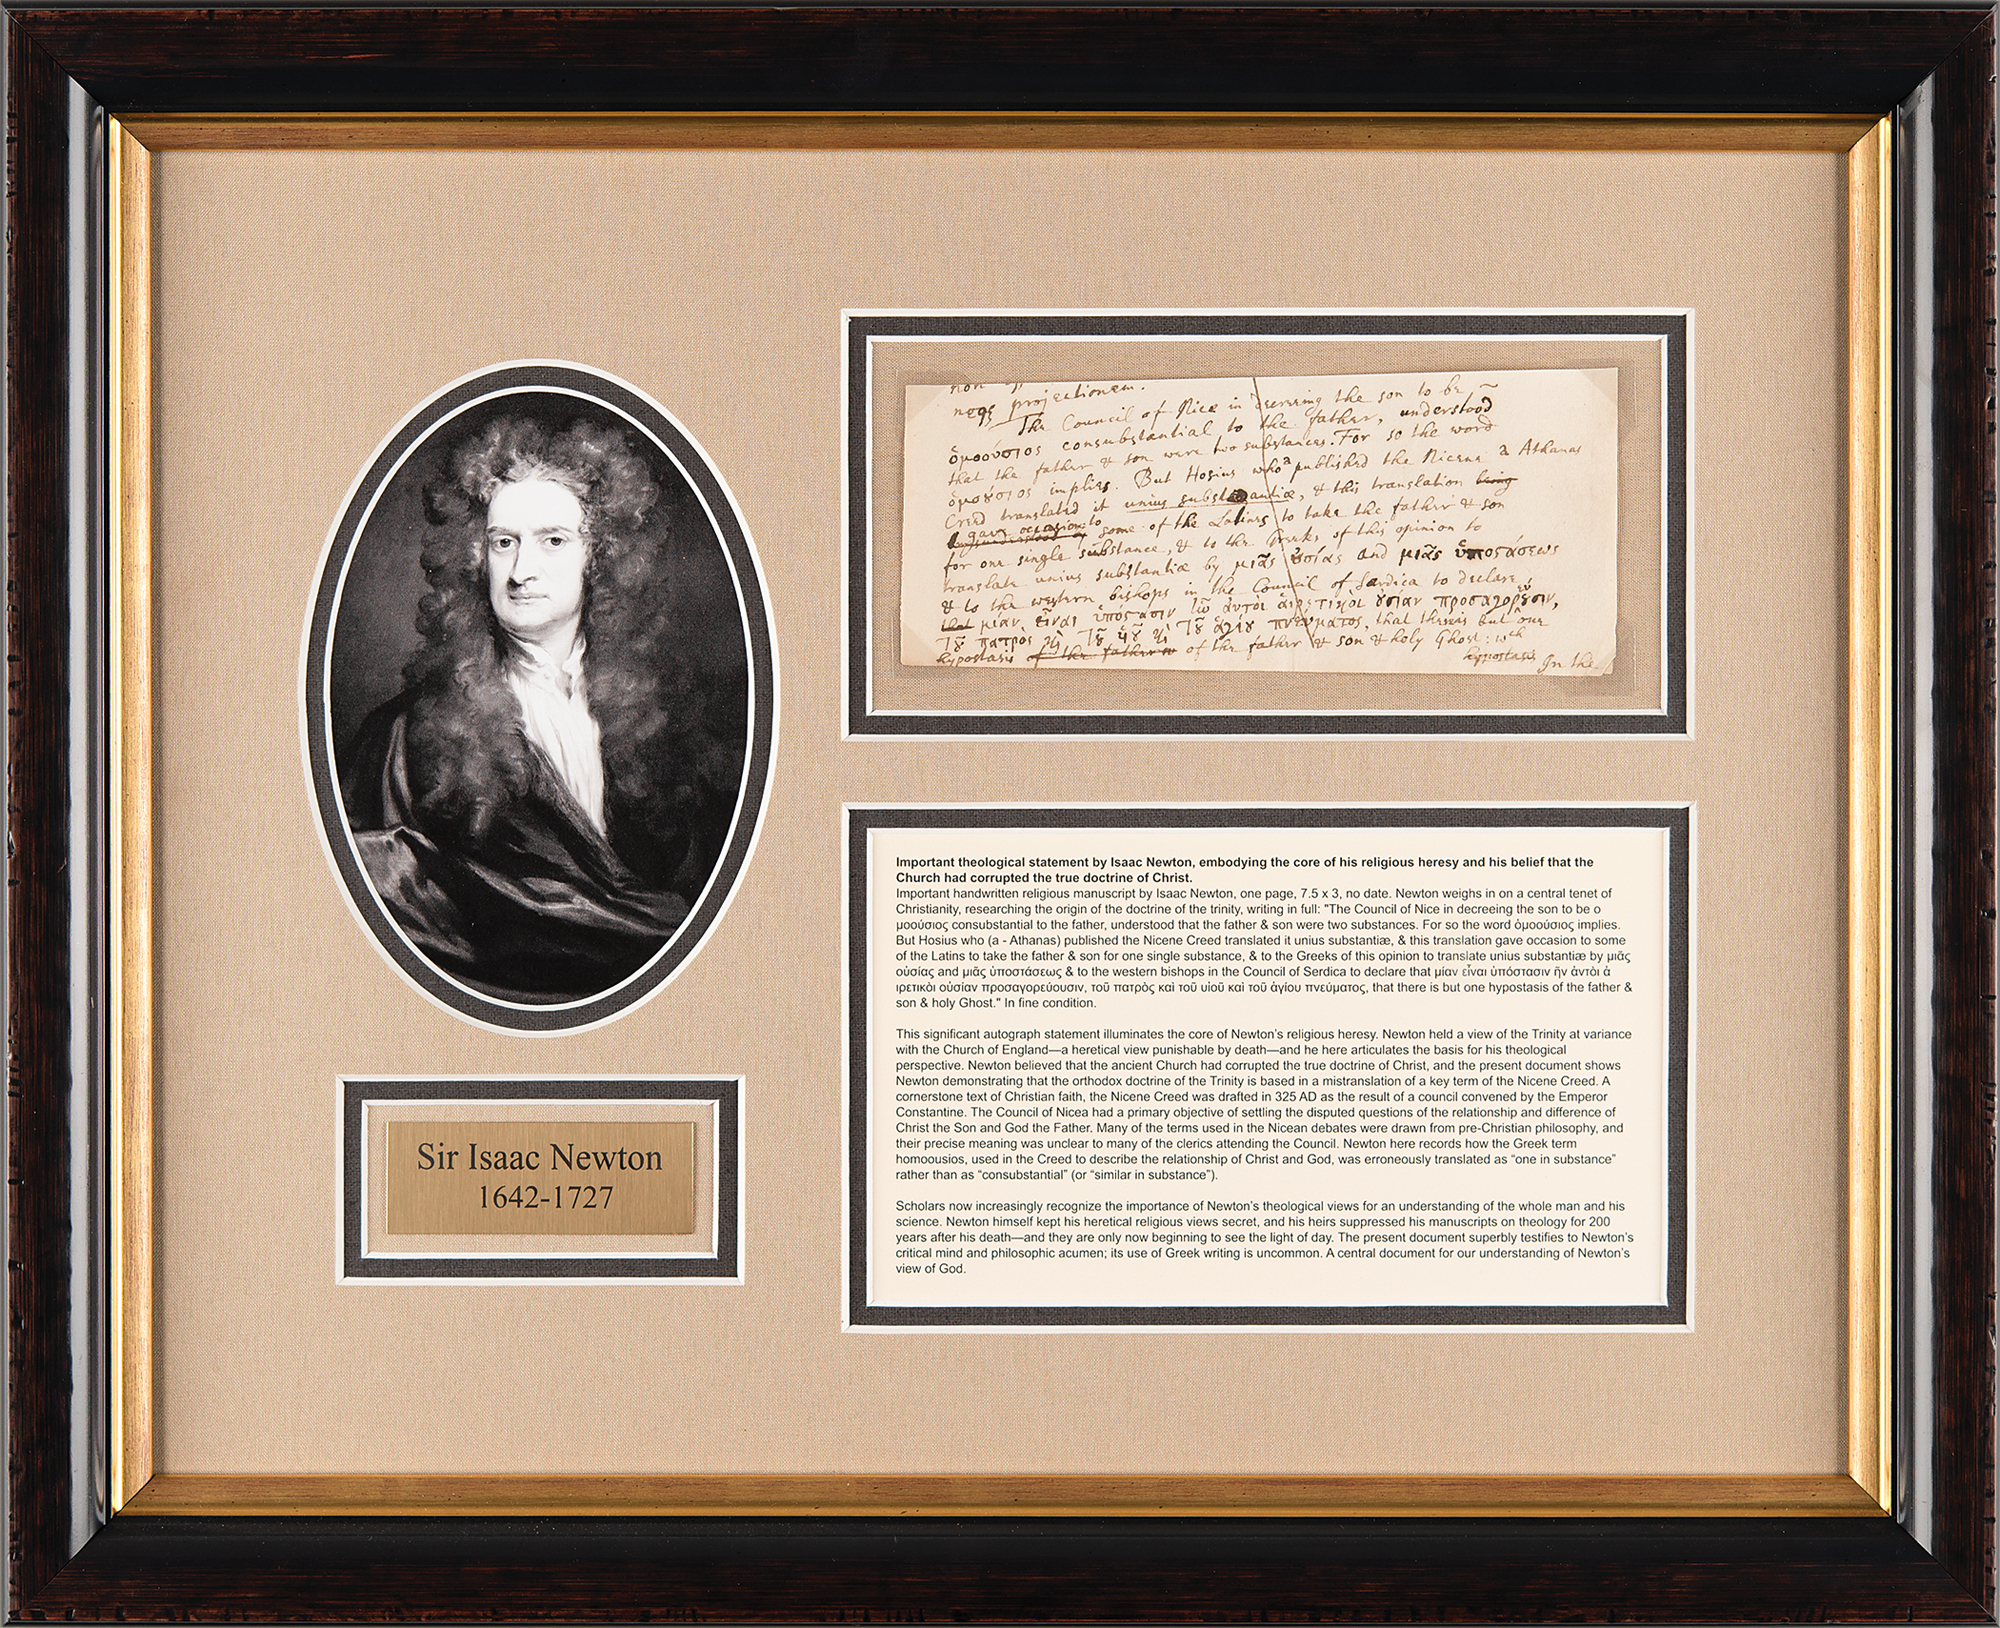 negs projectionem.
The Council of Nice in decreeing the son to be
ὁμοούσιος consubstantial to the father, understood
that the father & son were two substances. For so the word
ὁμοȣ́σιος implies. But Hosius who a published the Nicene a Athanas
Creed translated it unius substantiæ, & this translation being
gave occasion to some of the Latines to take the father & son
for one single substance, & to the Greeks of this opinion to
translate unius substantiæ by μιᾶς ȣ̓σίας and μιᾶς ὑποστάσεως
& to the western bishops in the Council of Sardica to declare
that μίαν εἶναι ὑπόστασιν ἣν ἀυτοὶ ἁιρετικοὶ ȣ̓σίαν προσαγορεύȣσιν,
Τȣ͂ πατρὸς καὶ Τȣ͂ ὑιȣ͂ καὶ Τȣ͂ ἁγίȣ πνεύματος, that there is but one
hypostasis of the father of the father & son & holy Ghost: wch
hypostasis In the
Important theological statement by Isaac Newton, embodying the core of his religious heresy and his belief that the
Church had corrupted the true doctrine of Christ.
Important handwritten religious manuscript by Isaac Newton, one page, 7.5 x 3, no date. Newton weighs in on a central tenet of
Christianity, researching the origin of the doctrine of the trinity, writing in full: "The Council of Nice in decreeing the son to be ο
μοούσιος consubstantial to the father, understood that the father & son were two substances. For so the word ὁμοούσιος implies.
But Hosius who (a - Athanas) published the Nicene Creed translated it unius substantiæ, & this translation gave occasion to some
of the Latins to take the father & son for one single substance, & to the Greeks of this opinion to translate unius substantiæ by μιᾶς
οὐσίας and μιᾶς ὑποστάσεως & to the western bishops in the Council of Serdica to declare that μίαν εἶναι ὑπόστασιν ἣν ἀντὸι ἁ
ιρετικὸι οὐσίαν προσαγορεύουσιν, τοῦ πατρὸς καὶ τοῦ υἱοῦ καὶ τοῦ ἁγίου πνεύματος, that there is but one hypostasis of the father &
son & holy Ghost." In fine condition.
This significant autograph statement illuminates the core of Newton's religious heresy. Newton held a view of the Trinity at variance
with the Church of England—a heretical view punishable by death—and he here articulates the basis for his theological
perspective. Newton believed that the ancient Church had corrupted the true doctrine of Christ, and the present document shows
Newton demonstrating that the orthodox doctrine of the Trinity is based in a mistranslation of a key term of the Nicene Creed. A
cornerstone text of Christian faith, the Nicene Creed was drafted in 325 AD as the result of a council convened by the Emperor
Constantine. The Council of Nicea had a primary objective of settling the disputed questions of the relationship and difference of
Christ the Son and God the Father. Many of the terms used in the Nicean debates were drawn from pre-Christian philosophy, and
their precise meaning was unclear to many of the clerics attending the Council. Newton here records how the Greek term
homoousios, used in the Creed to describe the relationship of Christ and God, was erroneously translated as “one in substance”
rather than as “consubstantial” (or “similar in substance”).
Scholars now increasingly recognize the importance of Newton's theological views for an understanding of the whole man and his
science. Newton himself kept his heretical religious views secret, and his heirs suppressed his manuscripts on theology for 200
years after his death—and they are only now beginning to see the light of day. The present document superbly testifies to Newton's
critical mind and philosophic acumen; its use of Greek writing is uncommon. A central document for our understanding of Newton's
view of God.
Sir Isaac Newton
1642-1727